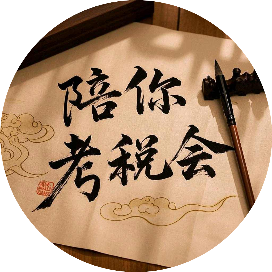 陪你
考税会